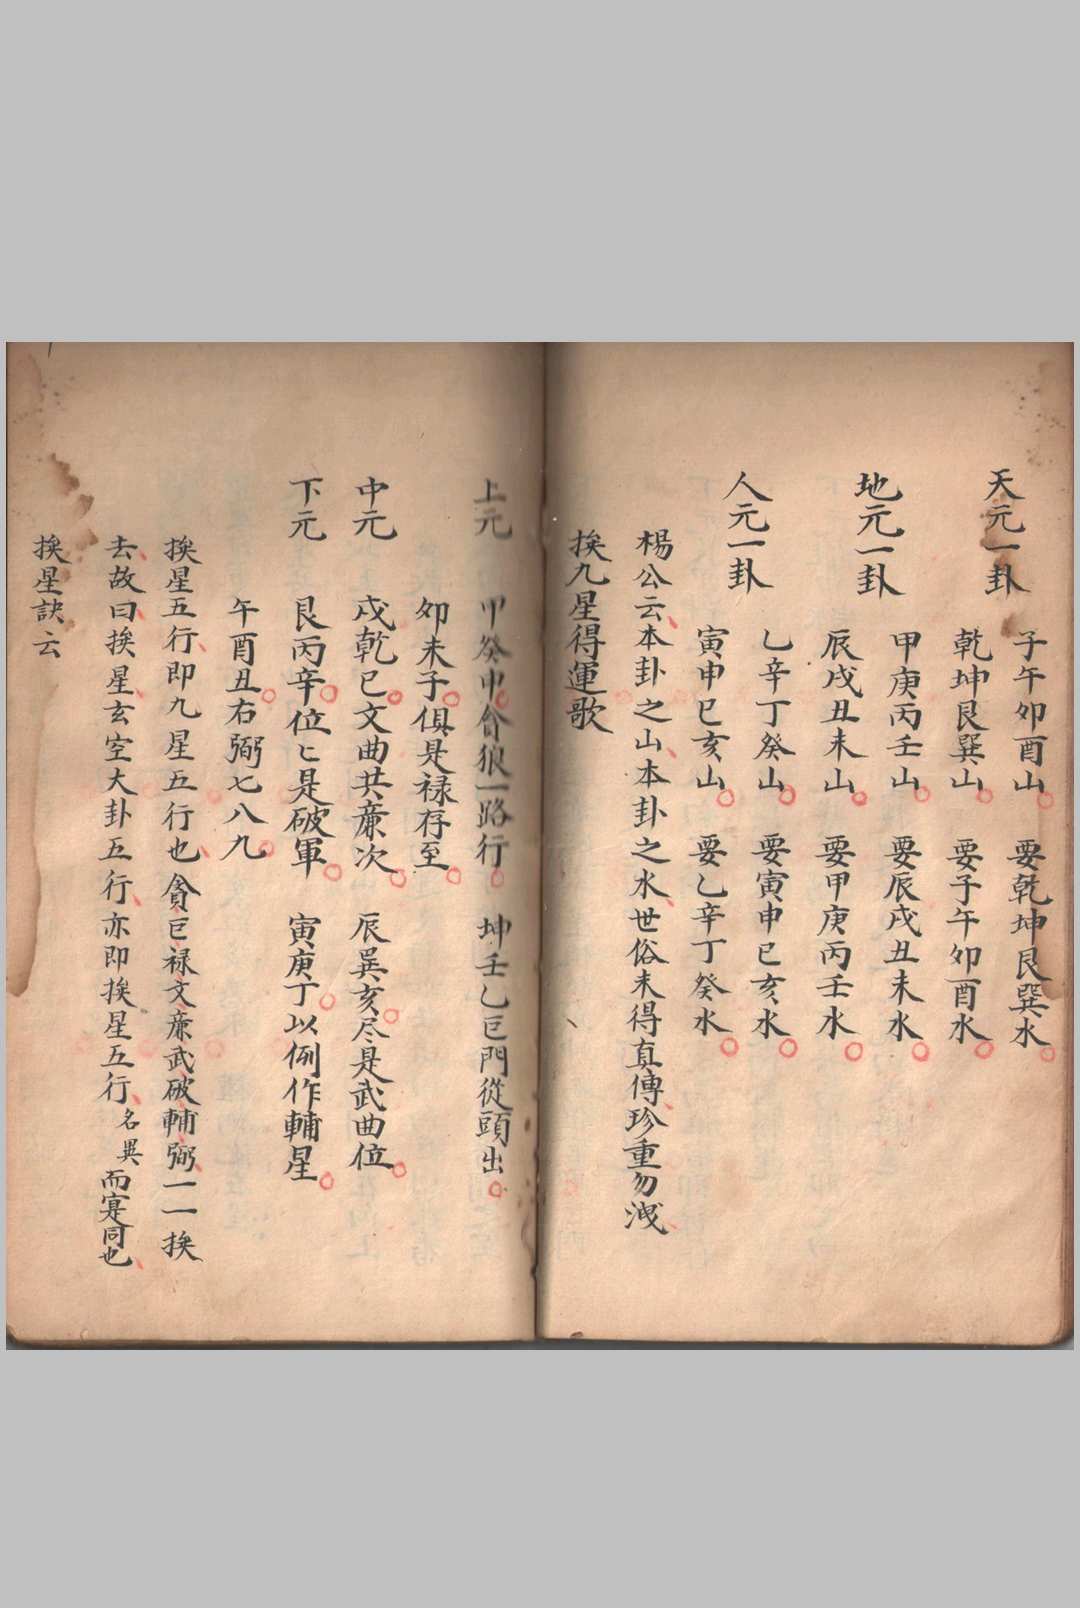 天元一卦
子午卯酉山 要乾坤艮巽水
乾坤艮巽山 要子午卯酉水
地元一卦
甲庚丙壬山 要辰戌丑未水
辰戌丑未山 要甲庚丙壬水
人元一卦
乙辛丁癸山 要寅申巳亥水
寅申巳亥山 要乙辛丁癸水
楊公云本卦之山本卦之水世俗未得真傳珍重勿洩
挨九星得運歌
上元 甲癸申貪狼一路行 坤壬乙巨門從頭出
卯未子俱是祿存至
中元 戌乾巳文曲共廉次 辰巽亥尽是武曲位
下元 艮丙辛位〻是破軍 寅庚丁以例作輔星
午酉丑右弼七八九
挨星五行即九星五行也貪巨祿文廉武破輔弼一一挨
去故曰挨星玄空大卦五行亦即挨星五行名異而寔同也
挨星訣云